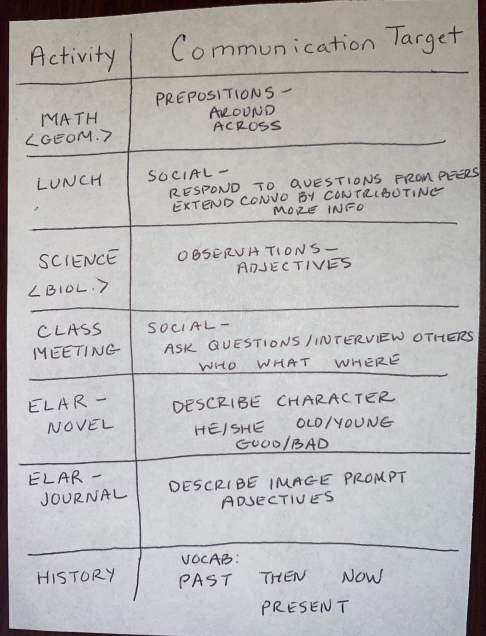 Activity Communication Target
MATH
<GEOM.>
PREPOSITIONS -
AROUND
ACROSS
LUNCH
SOCIAL -
RESPOND TO QUESTIONS FROM PEERS
EXTEND CONVO BY CONTRIBUTING
MORE INFO
SCIENCE
<BIOL.>
OBSERVATIONS -
ADJECTIVES
CLASS
MEETING
SOCIAL -
ASK QUESTIONS/INTERVIEW OTHERS
WHO WHAT WHERE
ELAR -
NOVEL
DESCRIBE CHARACTER
HE/SHE OLD/YOUNG
GOOD/BAD
ELAR -
JOURNAL
DESCRIBE IMAGE PROMPT
ADJECTIVES
HISTORY
VOCAB:
PAST THEN NOW
PRESENT